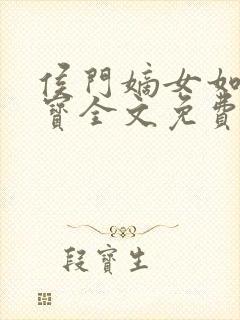 侯門嫡女如
寶全文免費
段寶生